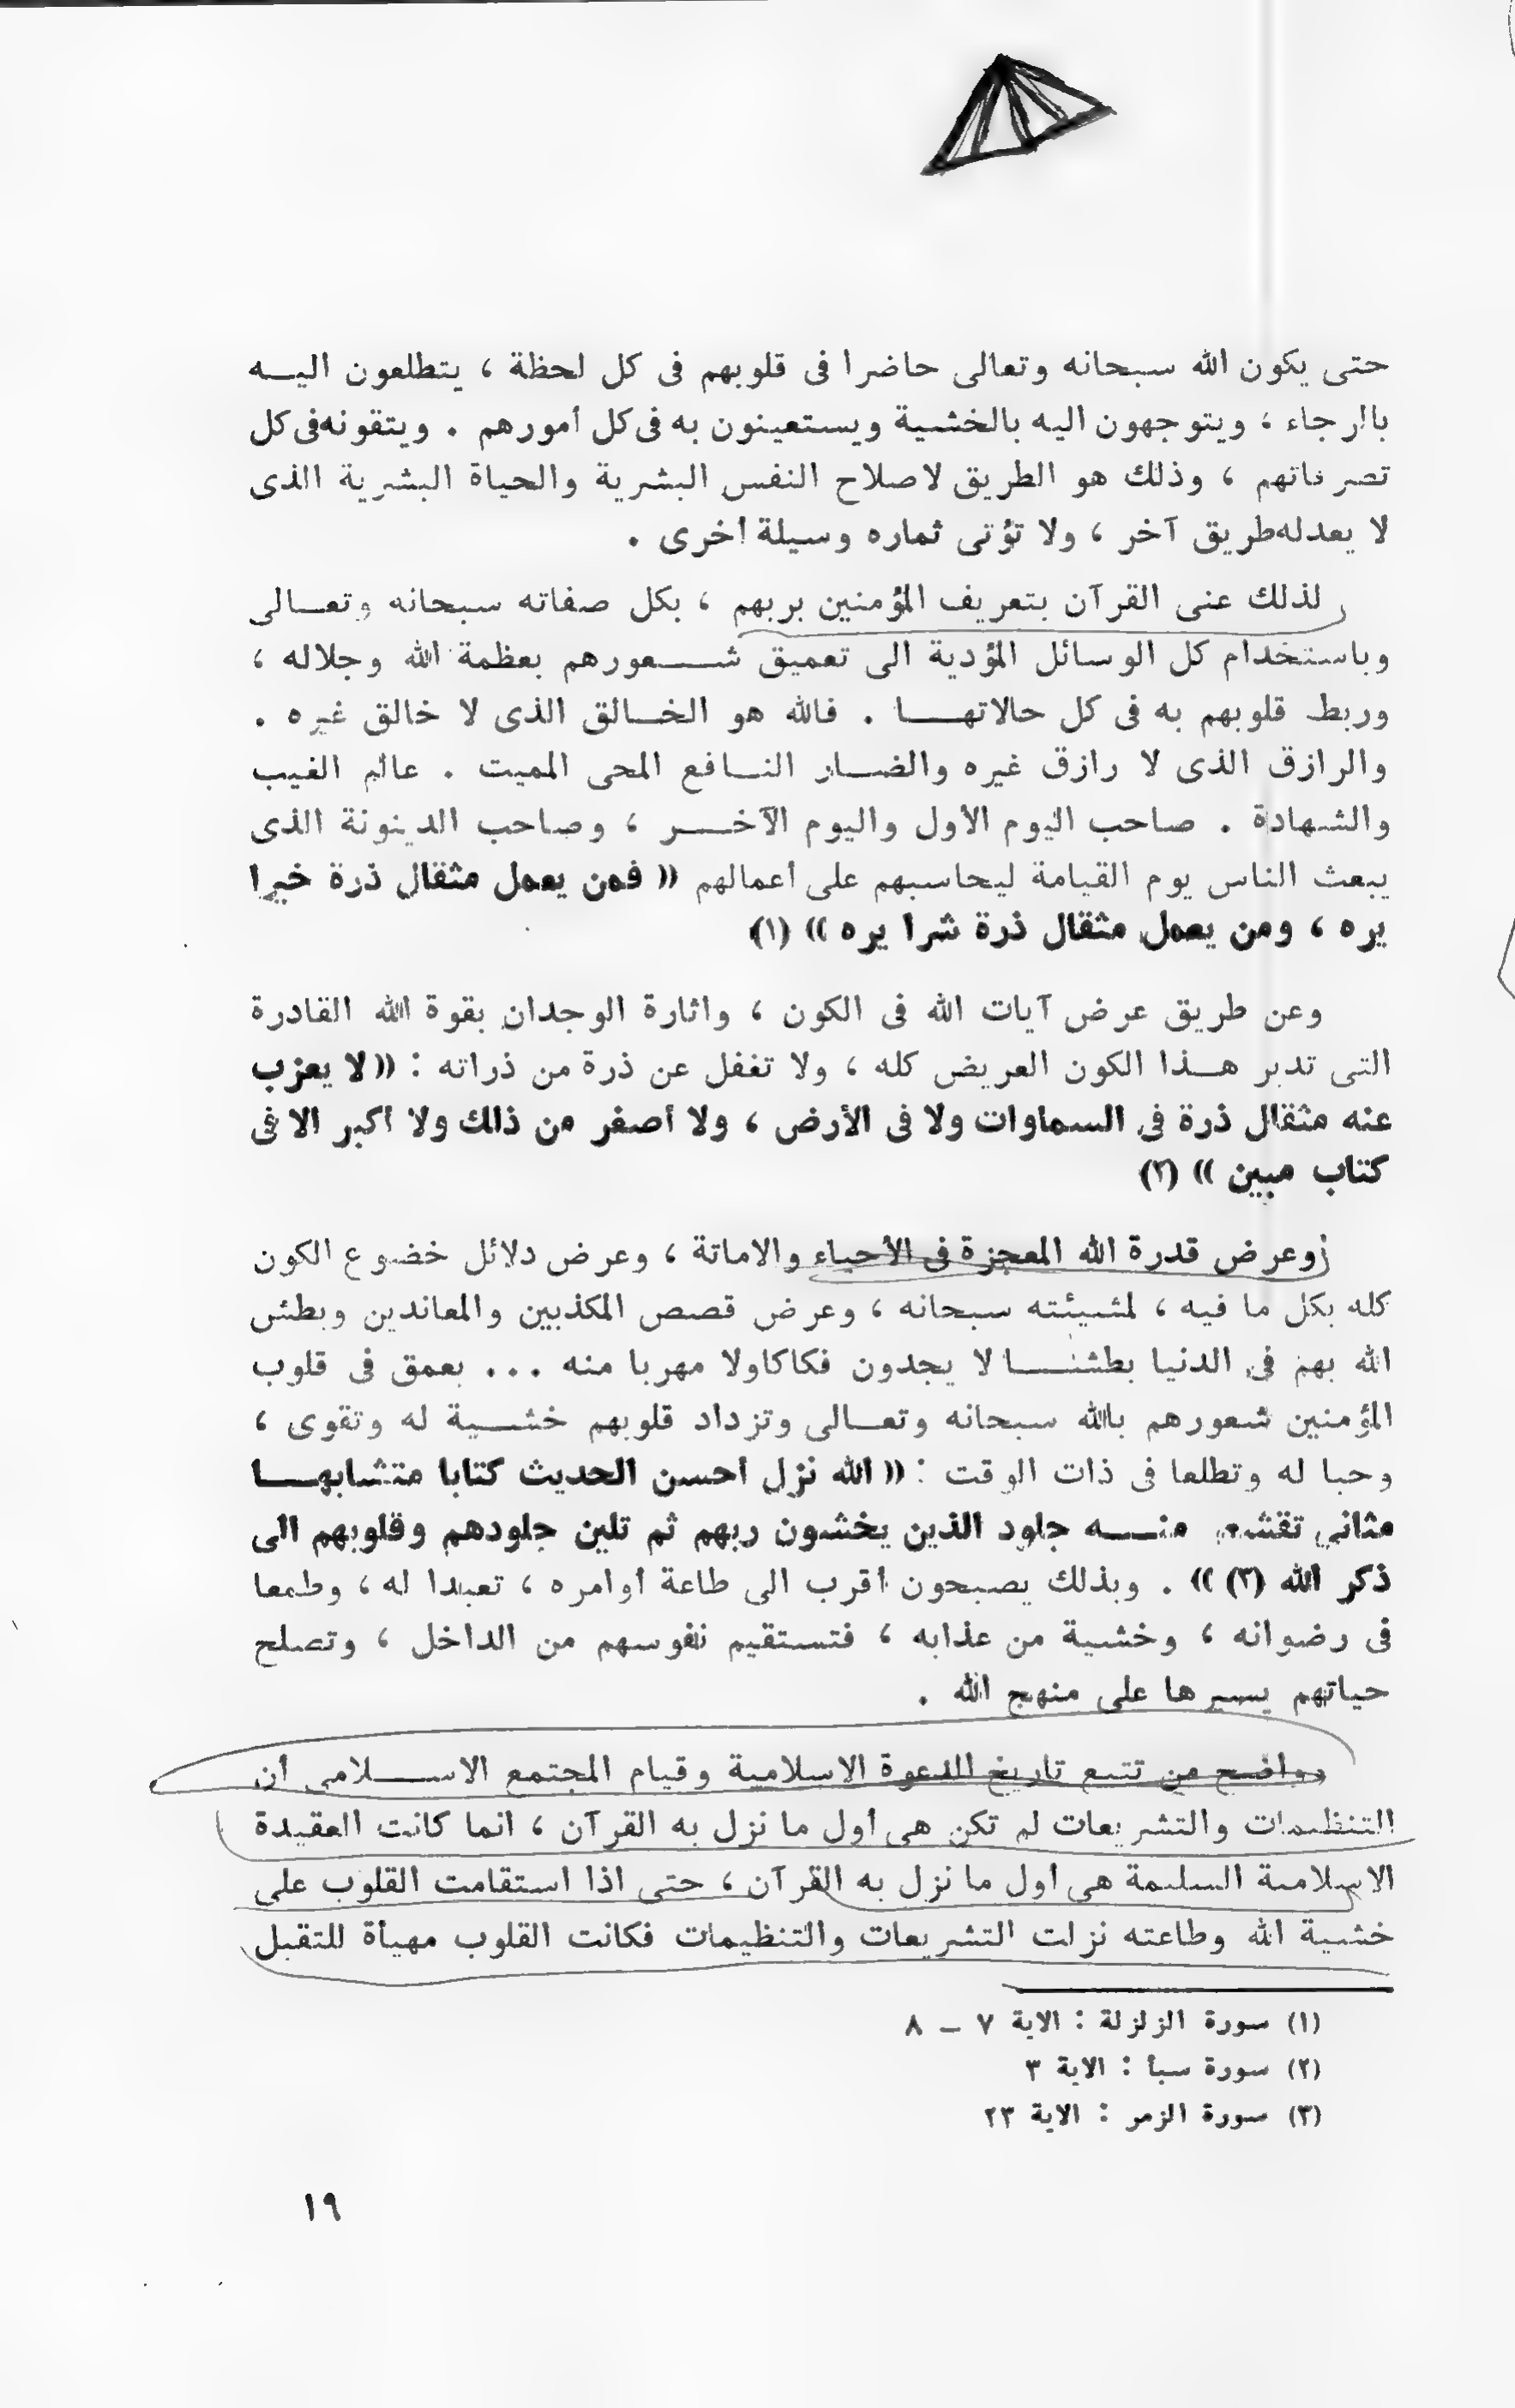 حتى يكون الله سبحانه وتعالى حاضرا فى قلوبهم فى كل لحظة ، يتطلعون اليه
بالرجاء ، ويتوجهون اليه بالخشية ويستعينون به فى كل أمورهم . ويتقونه فى كل
تصرفاتهم ، وذلك هو الطريق لاصلاح النفس البشرية والحياة البشرية الذى
لا يعدله طريق آخر ، ولا تؤتى ثماره وسيلة أخرى .
لذلك عنى القرآن بتعريف المؤمنين بربهم ، بكل صفاته سبحانه وتعالى
وباستخدام كل الوسائل المؤدية الى تعميق شعورهم بعظمة الله وجلاله ،
وربط قلوبهم به فى كل حالاتها . فالله هو الخالق الذى لا خالق غيره .
والرازق الذى لا رازق غيره والضار النافع المحى المميت . عالم الغيب
والشهادة . صاحب اليوم الأول واليوم الآخر ، وصاحب الدينونة الذى
يبعث الناس يوم القيامة ليحاسبهم على أعمالهم (( فمن يعمل مثقال ذرة خيرا
يره ، ومن يعمل مثقال ذرة شرا يره )) (١)
وعن طريق عرض آيات الله فى الكون ، واثارة الوجدان بقوة الله القادرة
التى تدبر هذا الكون العريض كله ، ولا تغفل عن ذرة من ذراته : (( لا يعزب
عنه مثقال ذرة فى السماوات ولا فى الأرض ، ولا أصغر من ذلك ولا أكبر الا فى
كتاب مبين )) (٢)
وعرض قدرة الله المعجزة فى الأحياء والاماتة ، وعرض دلائل خضوع الكون
كله بكل ما فيه ، لمشيئته سبحانه ، وعرض قصص المكذبين والمعاندين وبطش
الله بهم فى الدنيا بطشا لا يجدون فكاكاولا مهربا منه ... بعمق فى قلوب
المؤمنين شعورهم بالله سبحانه وتعالى وتزداد قلوبهم خشية له وتقوى ،
وحبا له وتطلعا فى ذات الوقت : (( الله نزل أحسن الحديث كتابا متشابها
مثانى تقشعر منه جلود الذين يخشون ربهم ثم تلين جلودهم وقلوبهم الى
ذكر الله (٣) )) . وبذلك يصبحون أقرب الى طاعة أوامره ، تعبدا له ، وطمعا
فى رضوانه ، وخشية من عذابه ، فتستقيم نفوسهم من الداخل ، وتصلح
حياتهم يسيرها على منهج الله .
وواضح من تتبع تاريخ الدعوة الاسلامية وقيام المجتمع الاسلامى أن
التنظيمات والتشريعات لم تكن هى أول ما نزل به القرآن ، انما كانت العقيدة
الاسلامية السليمة هى أول ما نزل به القرآن ، حتى اذا استقامت القلوب على
خشية الله وطاعته نزلت التشريعات والتنظيمات فكانت القلوب مهيأة للتقبل
(١) سورة الزلزلة : الاية ٧ – ٨
(٢) سورة سبأ : الاية ٣
(٣) سورة الزمر : الاية ٢٣
١٩